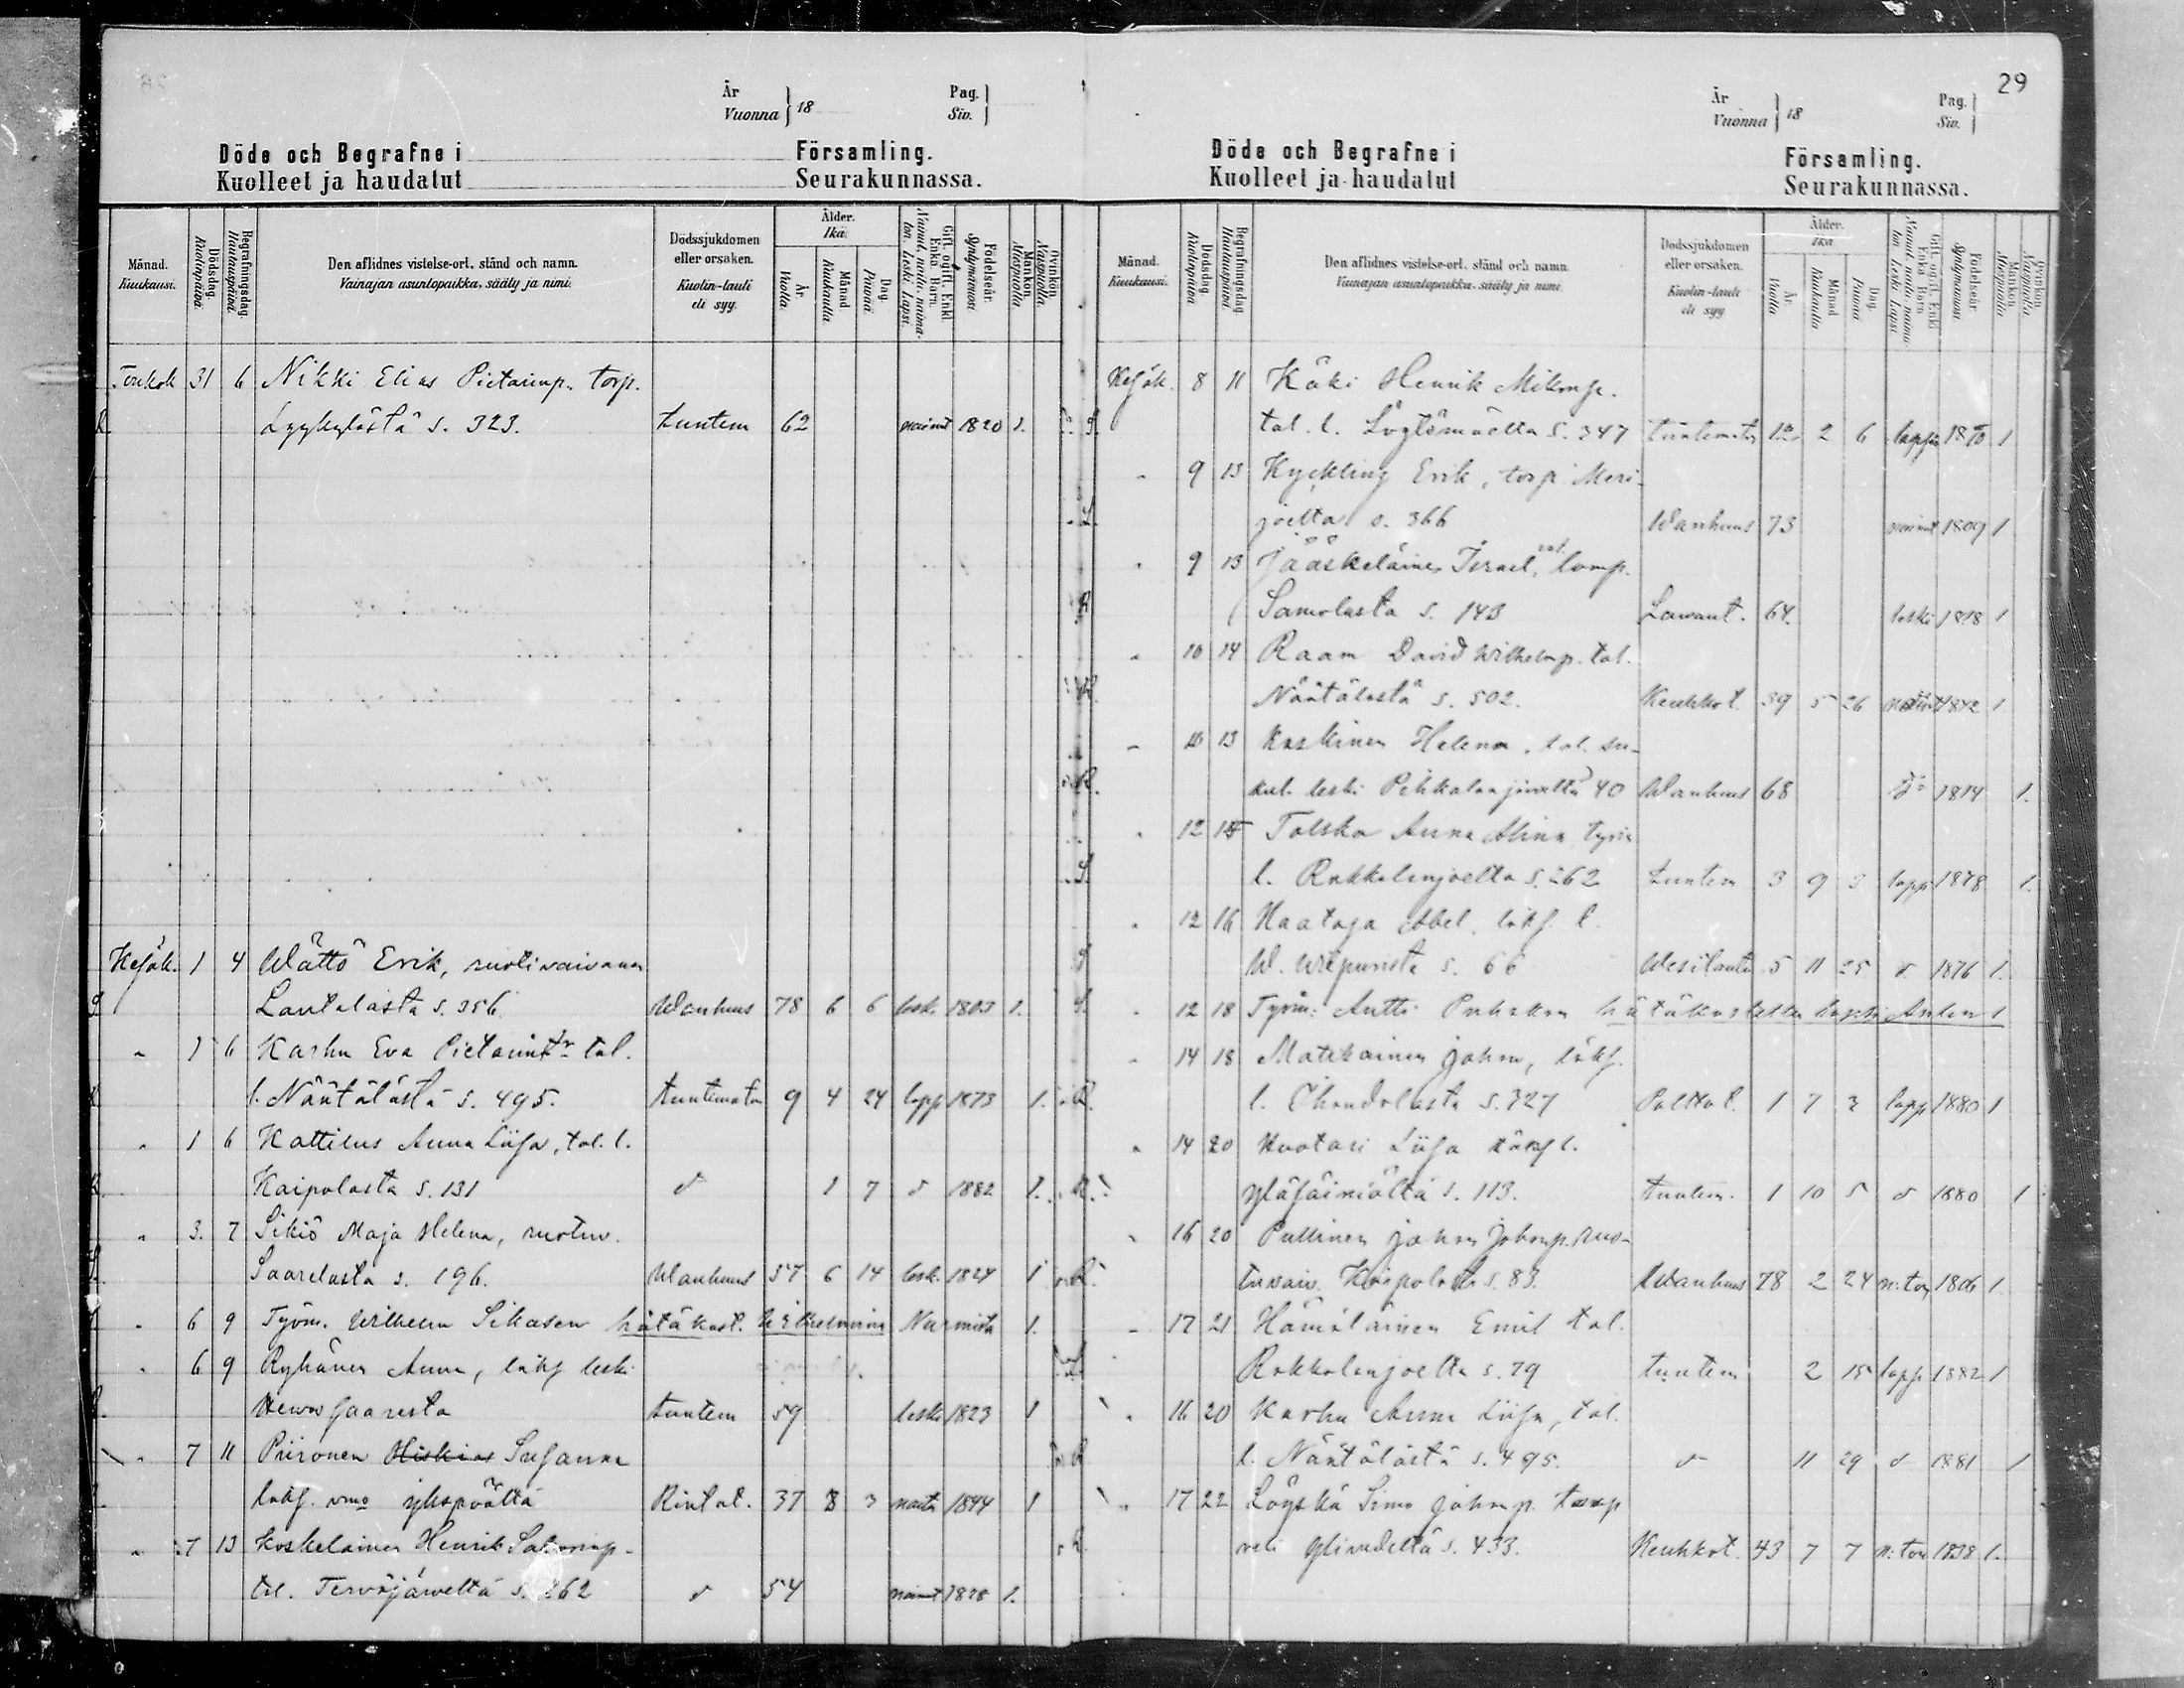 29
År
Vuonna } 18
Pag.
Siv. }
Döde och Begrafne i Församling.
Kuolleet ja haudatut Seurakunnassa.
Månad. Kuukausi.
Dödsdag. Kuolinpäivä.
Begrafningsdag. Hautauspäivä.
Den aflidnes vistelse-ort, stånd och namn.
Vainajan asuntopaikka, sääty ja nimi.
Dödssjukdomen eller orsaken.
Kuolin-tauti eli syy.
Ålder. Ikä.
År. Vuotta.
Månad. Kuukautta
Dag. Päivää
Gift, ogift. Enkl. Enka. Barn.
Nainut, naitu, naimaton. Leski. Lapsi.
Födelseår. Syntymävuosi.
Mankön. Miespuolia.
Qvinkön. Vaispuolia.
31 6 Nikki Elias Pietarinp. torp.
Lyykylästä s. 323. tuntem 62 nainut 1820 1.
Helmik. 1 4 Wättö Erik, ruotivaivanen
Lautalasta s. 356. Wanhuus 78 6 6 lesk. 1803 1.
" 1 6 Karhu Eva Pietarintr tal.
l. Näätälästä s. 495. tuntematon 9 4 24 laps 1873 1.
" 1 6 Kattilus Anna Liisa, tal. l.
Kaipolasta s. 131 d 1 7 d 1882 1.
" 3. 7 Sikiö Maja Helena, ruotiv.
Saarelasta s. 196. Wanhuus 57 6 14 lesk. 1824 1
" 6 9 Työm. Wilhelm Sikasen hätäkast. Wilhelmina Nurmista 1.
" 6 9 Ryhänen Anna, leski
tuntem 59 leski 1823 1
" 7 11 Piironen Hiskias Susanna
ykspäältä Rintat. 37 8 3 1844 1
" 7 13 Koskelainen Henrik Salomonp.
tal. Terwajärweltä s. 262 d 54 nainut 1828 1.
År
Vuonna } 18
Pag.
Siv. }
Döde och Begrafne i Församling.
Kuolleet ja haudatut Seurakunnassa.
Månad. Kuukausi.
Dödsdag. Kuolinpäivä
Begrafningsdag. Hautauspäivä.
Den aflidnes vistelse-ort, stånd och namn.
Vainajan asuntopaikka, sääty ja nimi.
Dödssjukdomen eller orsaken.
Kuolin-tauti eli syy
Ålder. Ikä
År. Vuotta
Månad. Kuukautta
Dag. Päivää
Gift, ogift. Enkl. Enka. Barn
Nainut, naitu, naimaton. Leski. Lapsi.
Födelseår. Syntymävuosi
Mankön Miespuolia
Qvinkön. Vaispuolia
8 11 Käki Henrik Mikonp.
tal. l. s. 347 tuntematon 12 2 6 lapsi 1870 1
" 9 13 Kyckling Erik, torp. Meri-
joelta s. 366 Wanhuus 73 nainut 1809 1
" 9 13 Jääskeläinen Israel, lamp.
Samolasta s. 143 Lavant. 64. leski 1818 1
" 10 14 Raam David Wilhelmp. tal.
Näätälästä s. 502. Keuhkot. 39 5 26 1842 1
" 10 13 Koskinen Helena, tal. su-
kul. leski Pihkalanjärveltä 40 Wanhuus 68 d:o 1814 1.
" 12 Talska Anna Alina työm
l. Rokkalanjoelta s. 262 tuntem 3 9 3 laps 1878 1.
" 12 16 Haataja Abel, l.
W. Wiipurista s. 66 Wesitauti 5 11 25 d 1876 1.
" 12 18 Työm. Antti Puhakan hätäkastettu lapsi Anton 1
" 14 18 Matikainen Johan,
l. s. 327 Polttot. 1 7 3 laps 1880 1
" 14 20 Huotari Liisa l.
s. 113. tuntem. 1 10 5 d 1880 1
" 16 20 Pullinen Johan Johanp. ruo-
tivaiv. Kaipolasta s. 83. Wanhuus 78 2 24 n:ton 1806 1.
" 17 21 Hämäläinen Emil tal.
Rokkalanjoelta s. 79 tuntem 2 15 laps 1882 1
" 16 20 Karhu Anna Liisa, tal.
l. Näätälästä s. 495. d 11 29 d 1881 1
" 17 22 Löyskä Simo Johanp.
veli s. 433. Keuhkot. 43 7 7 n:ton 1838 1.